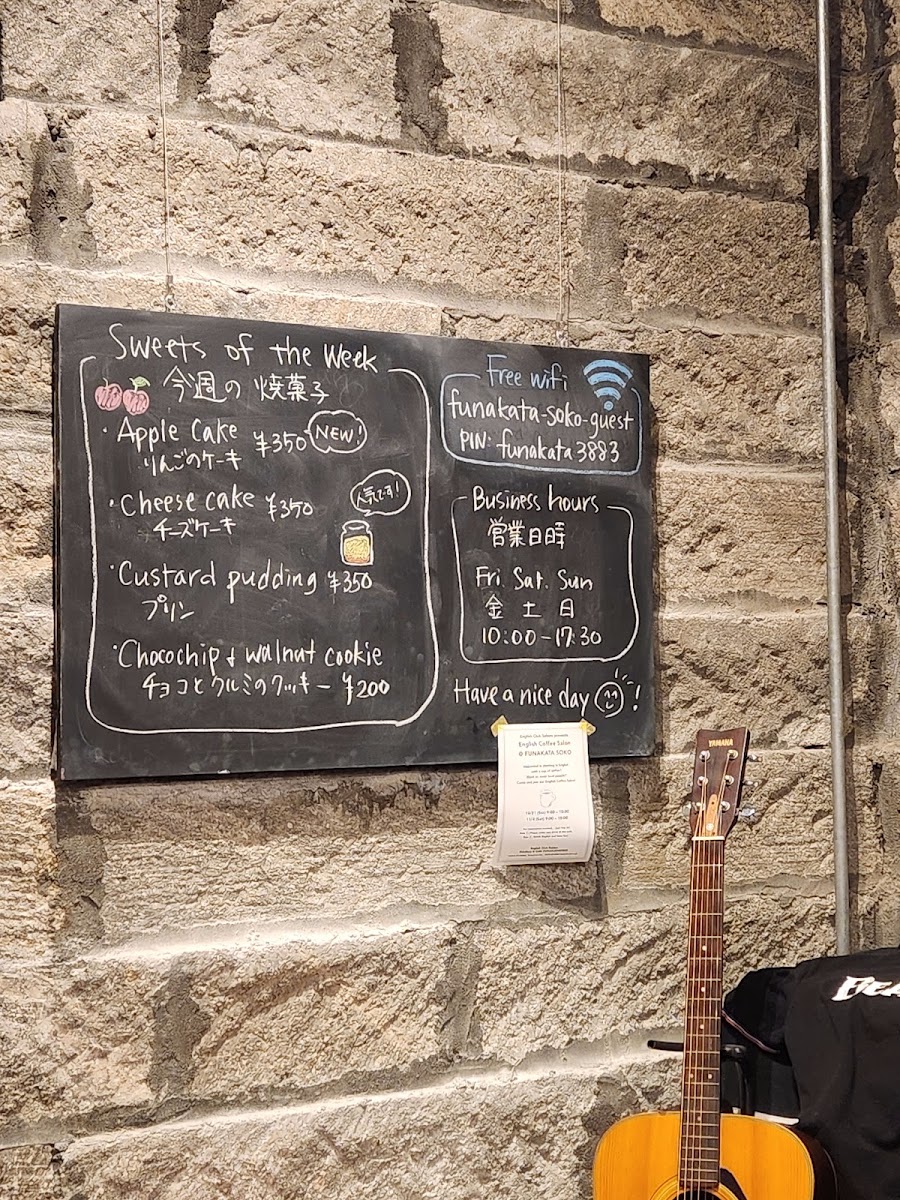 Sweets of the Week
今週の焼菓子
・Apple Cake ¥350 NEW!
りんごのケーキ
・Cheese cake ¥350
チーズケーキ
人気です!
・Custard pudding ¥350
プリン
・Chocochip & walnut cookie
チョコとクルミのクッキー ¥200
Free wifi
funakata-soko-guest
PIN: funakata3883
Business hours
営業日時
Fri. Sat. Sun
金 土 日
10:00-17:30
Have a nice day !
English Coffee Salon
@ FUNAKATA SOKO
YAMAHA